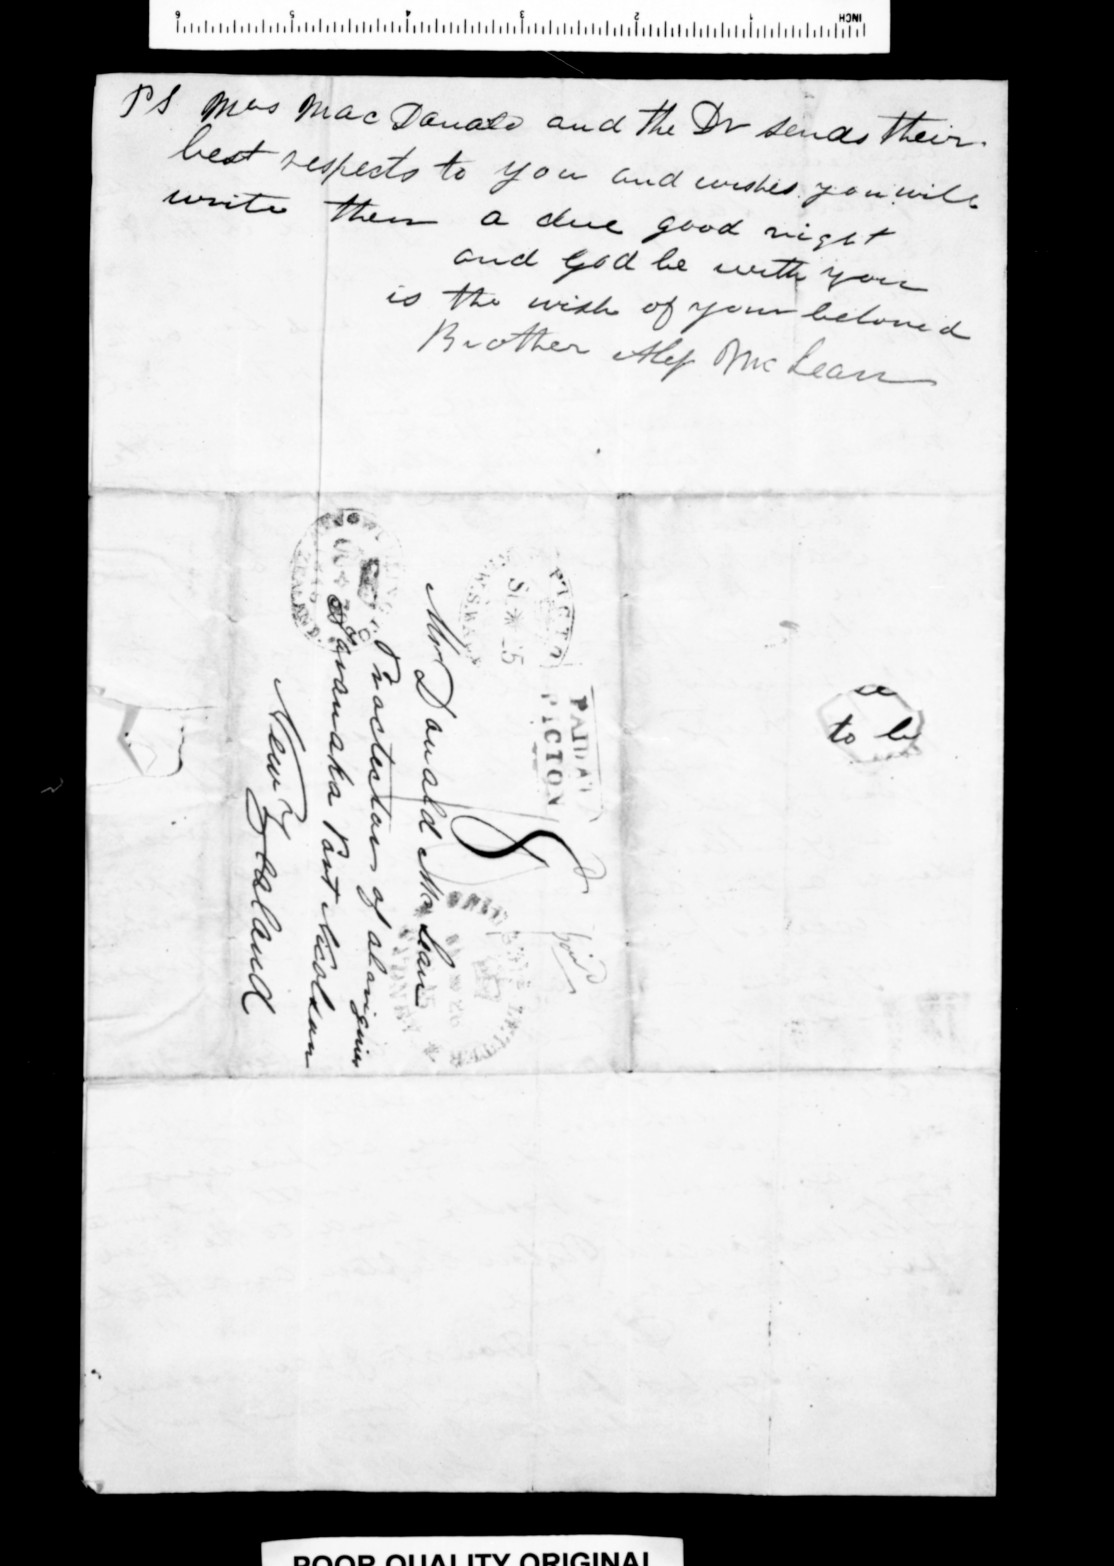 PS Mrs MacDonald and the Dr sends their
best respects to you and wishes you will
write them a due good night
and God be with you
is the wish of your beloved
Brother Alex McLean
PICTON
N.S. WALES
PAID AT
PICTON
8
paid
Mr Donald McLean
Protector of aborigines
Taranaka Port Nicolson
New Zealand
to be
INCH 1 2 3 4 5 6
POOR QUALITY ORIGINAL